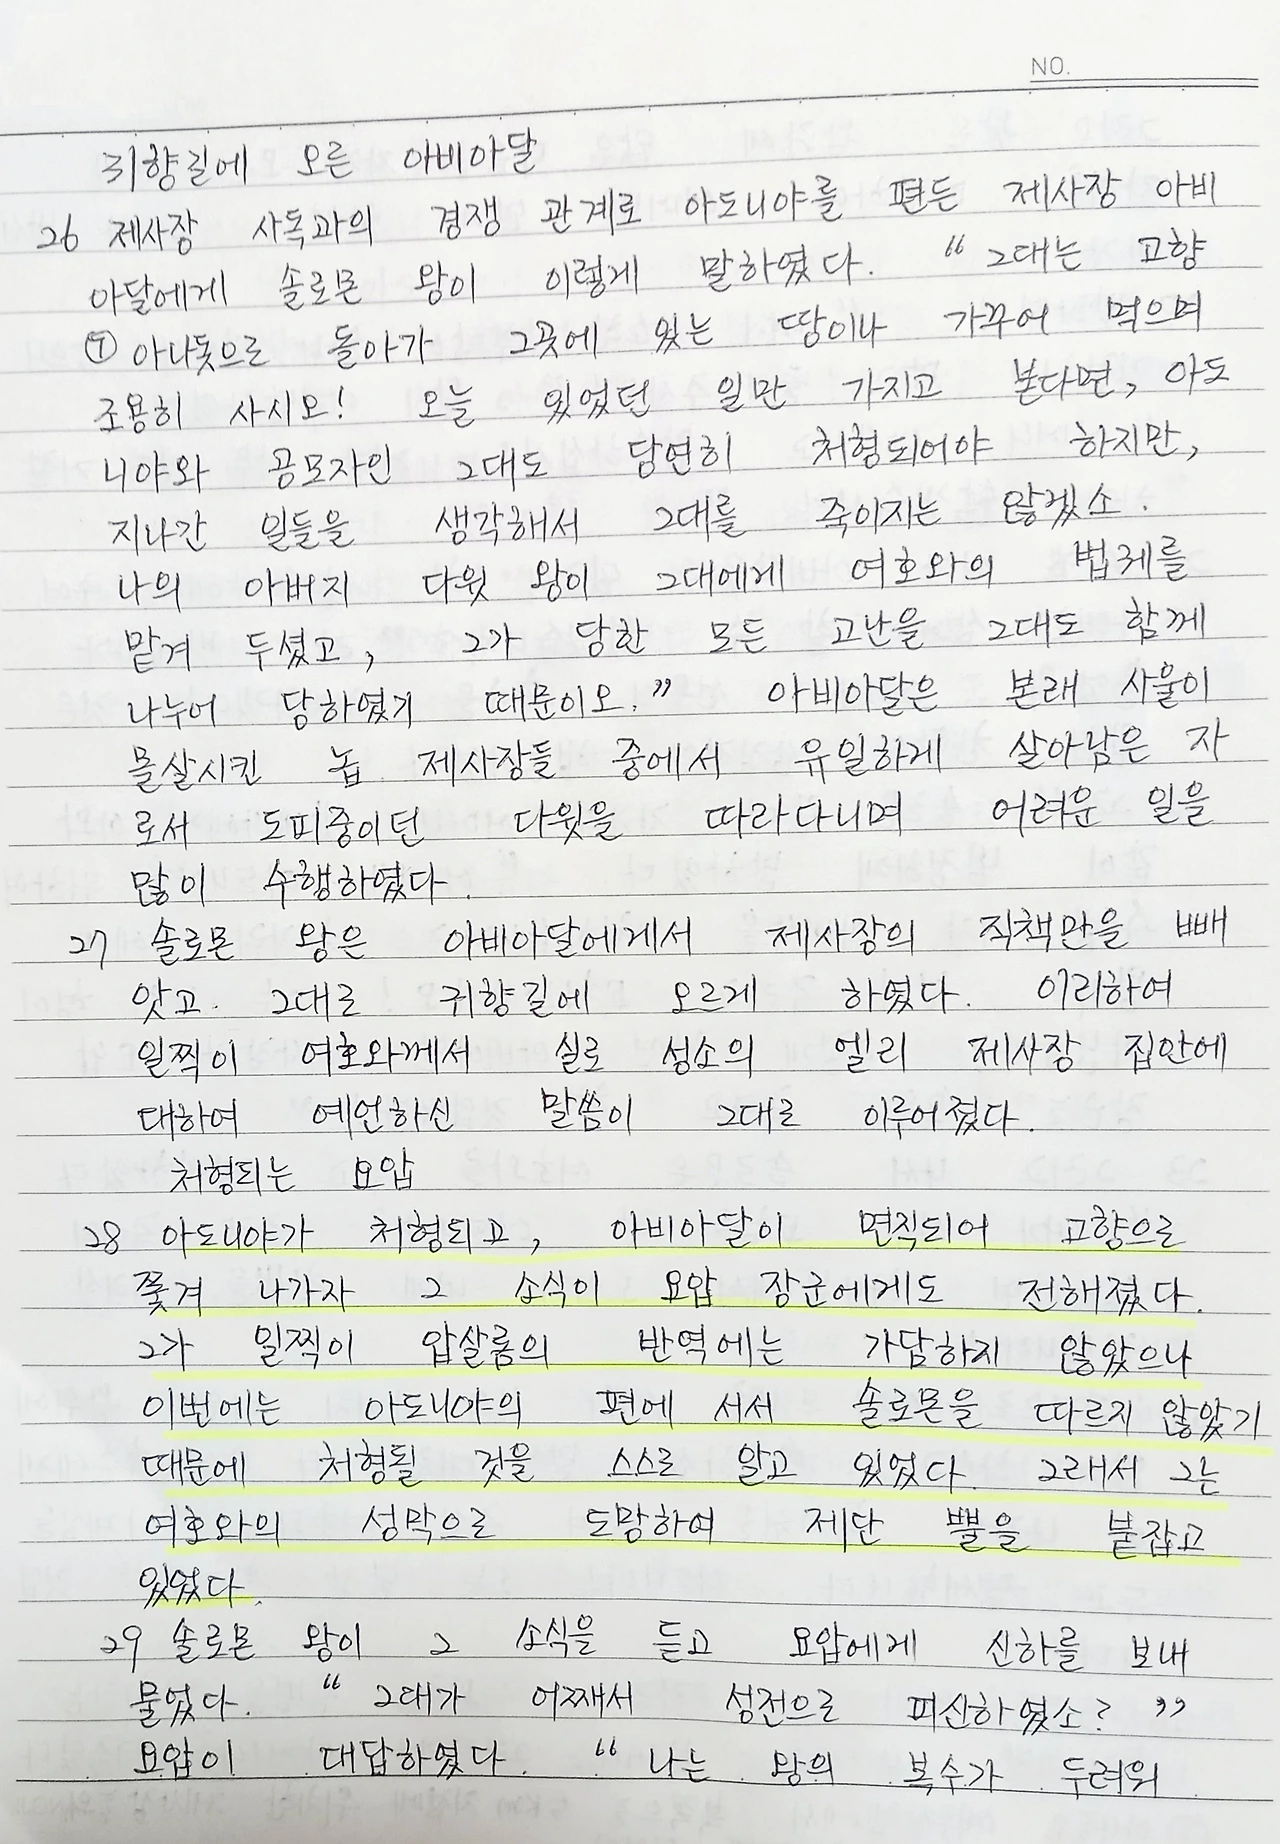 NO.
귀향길에 오른 아비아달
26 제사장 사독과의 경쟁 관계로 아도니야를 편든 제사장 아비
아달에게 솔로몬 왕이 이렇게 말하였다. “그대는 고향
㉠ 아나돗으로 돌아가 그곳에 있는 땅이나 가꾸어 먹으며
조용히 사시오! 오늘 있었던 일만 가지고 본다면, 아도
니야와 공모자인 그대도 당연히 처형되어야 하지만,
지나간 일들을 생각해서 그대를 죽이지는 않겠소.
나의 아버지 다윗 왕이 그대에게 여호와의 법궤를
맡겨 두셨고, 그가 당한 모든 고난을 그대도 함께
나누어 당하였기 때문이오.” 아비아달은 본래 사울이
몰살시킨 놉 제사장들 중에서 유일하게 살아남은 자
로서 도피중이던 다윗을 따라다니며 어려운 일을
많이 수행하였다.
27 솔로몬 왕은 아비아달에게서 제사장의 직책만을 빼
앗고. 그대로 귀향길에 오르게 하였다. 이리하여
일찍이 여호와께서 실로 성소의 엘리 제사장 집안에
대하여 예언하신 말씀이 그대로 이루어졌다.
처형되는 요압
28 아도니야가 처형되고, 아비아달이 면직되어 고향으로
쫓겨 나가자 그 소식이 요압 장군에게도 전해졌다.
그가 일찍이 압살롬의 반역에는 가담하지 않았으나
이번에는 아도니야의 편에 서서 솔로몬을 따르지 않았기
때문에 처형될 것을 스스로 알고 있었다. 그래서 그는
여호와의 성막으로 도망하여 제단 뿔을 붙잡고
있었다.
29 솔로몬 왕이 그 소식을 듣고 요압에게 신하를 보내
물었다. “그대가 어째서 성전으로 피신하였소?”
요압이 대답하였다. “나는 왕의 복수가 두려워